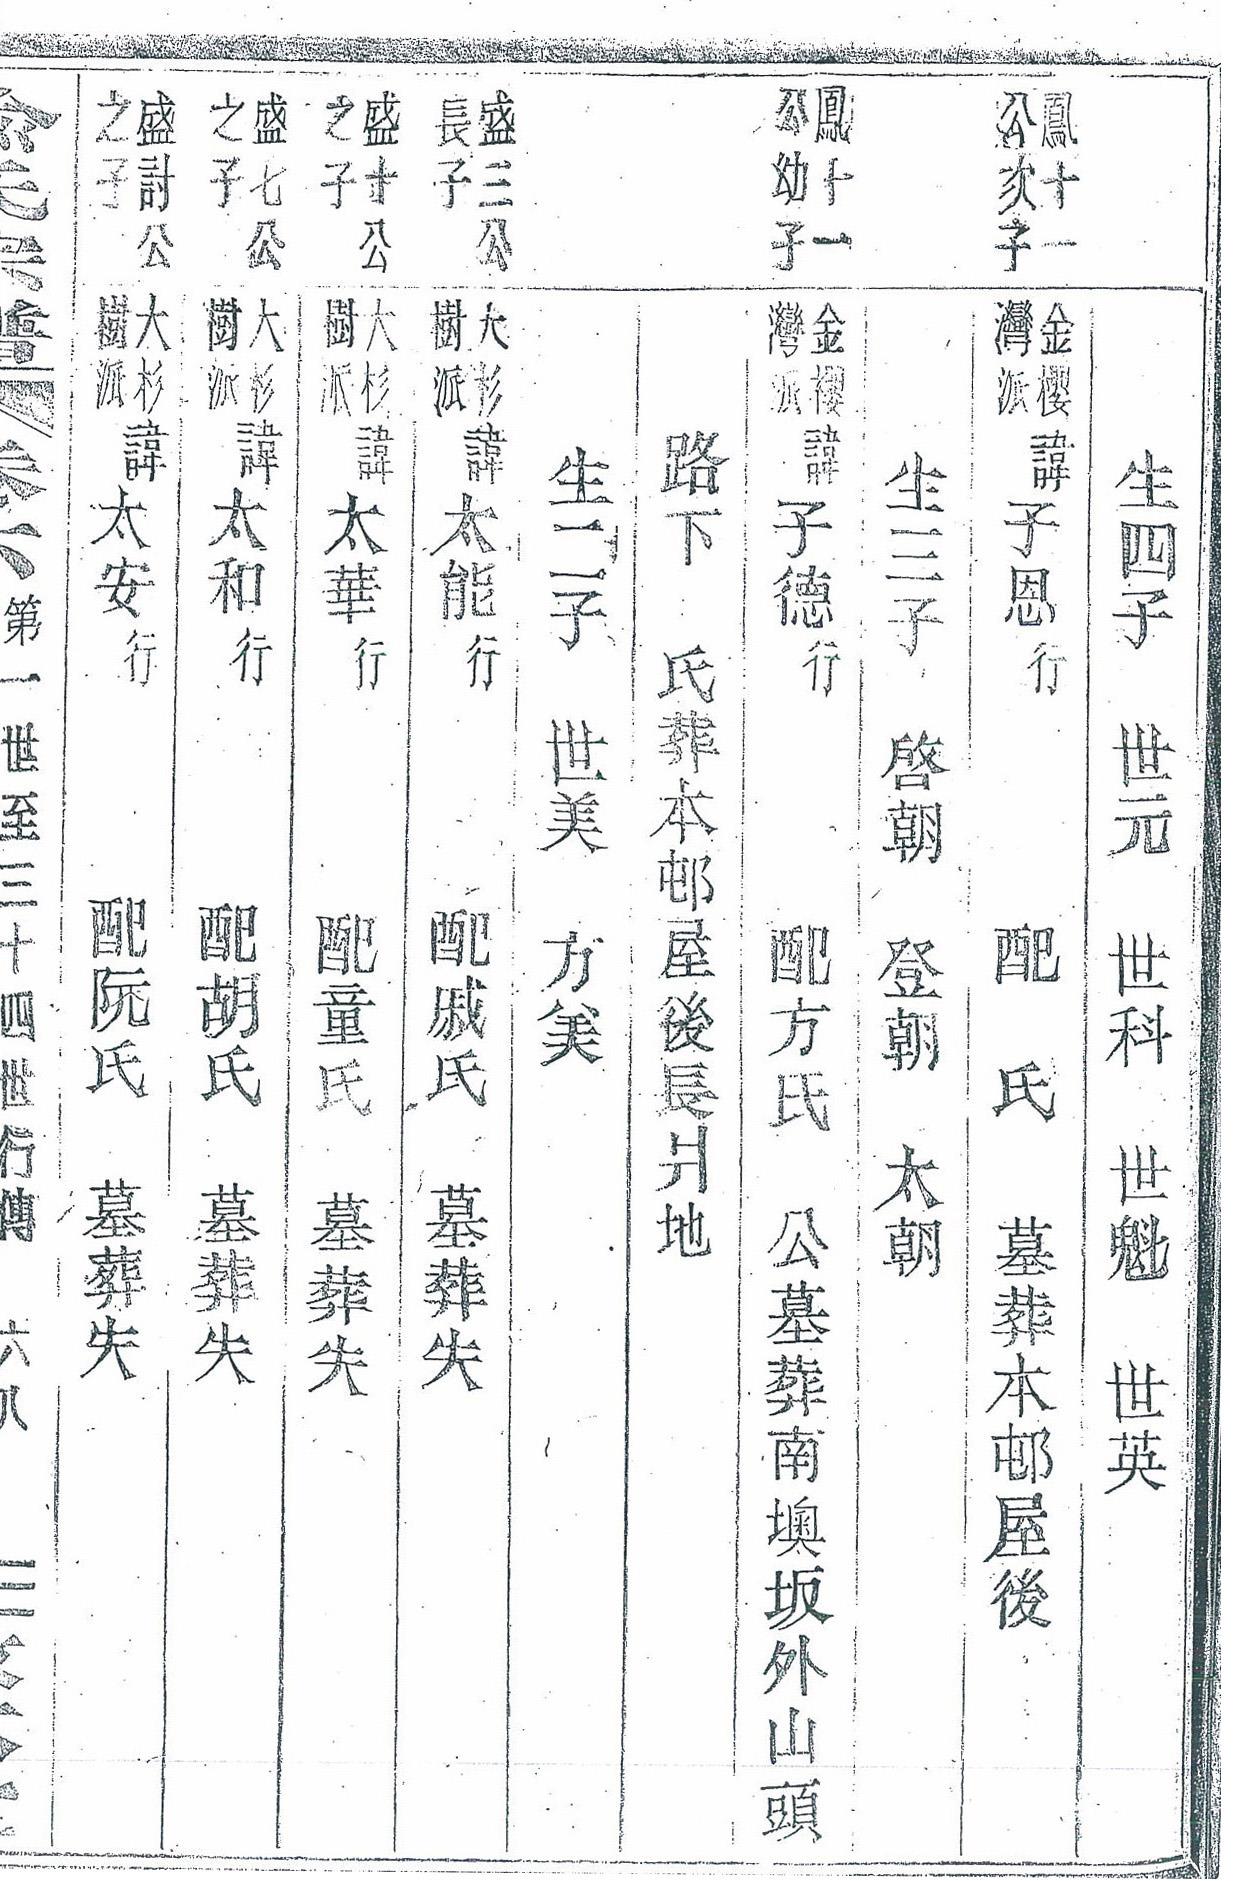 生四子 世元 世科 世魁 世英
鳳十一公次子 金櫻灣派 諱子恩行 配 氏 墓葬本邨屋後
生三子 啓朝 登朝 太朝
鳳十一公幼子 金櫻灣派 諱子德行 配方氏 公墓葬南墺坂外山頭
路下 氏葬本邨屋後長爿地
生二子 世美 方美
盛三公長子 大杉樹派 諱太能行 配戚氏 墓葬失
盛十公之子 大杉樹派 諱太華行 配童氏 墓葬失
盛七公之子 大杉樹派 諱太和行 配胡氏 墓葬失
盛討公之子 大杉樹派 諱太安行 配阮氏 墓葬失
氏宗譜 卷六 第一世至三十四世行傳 六八 三